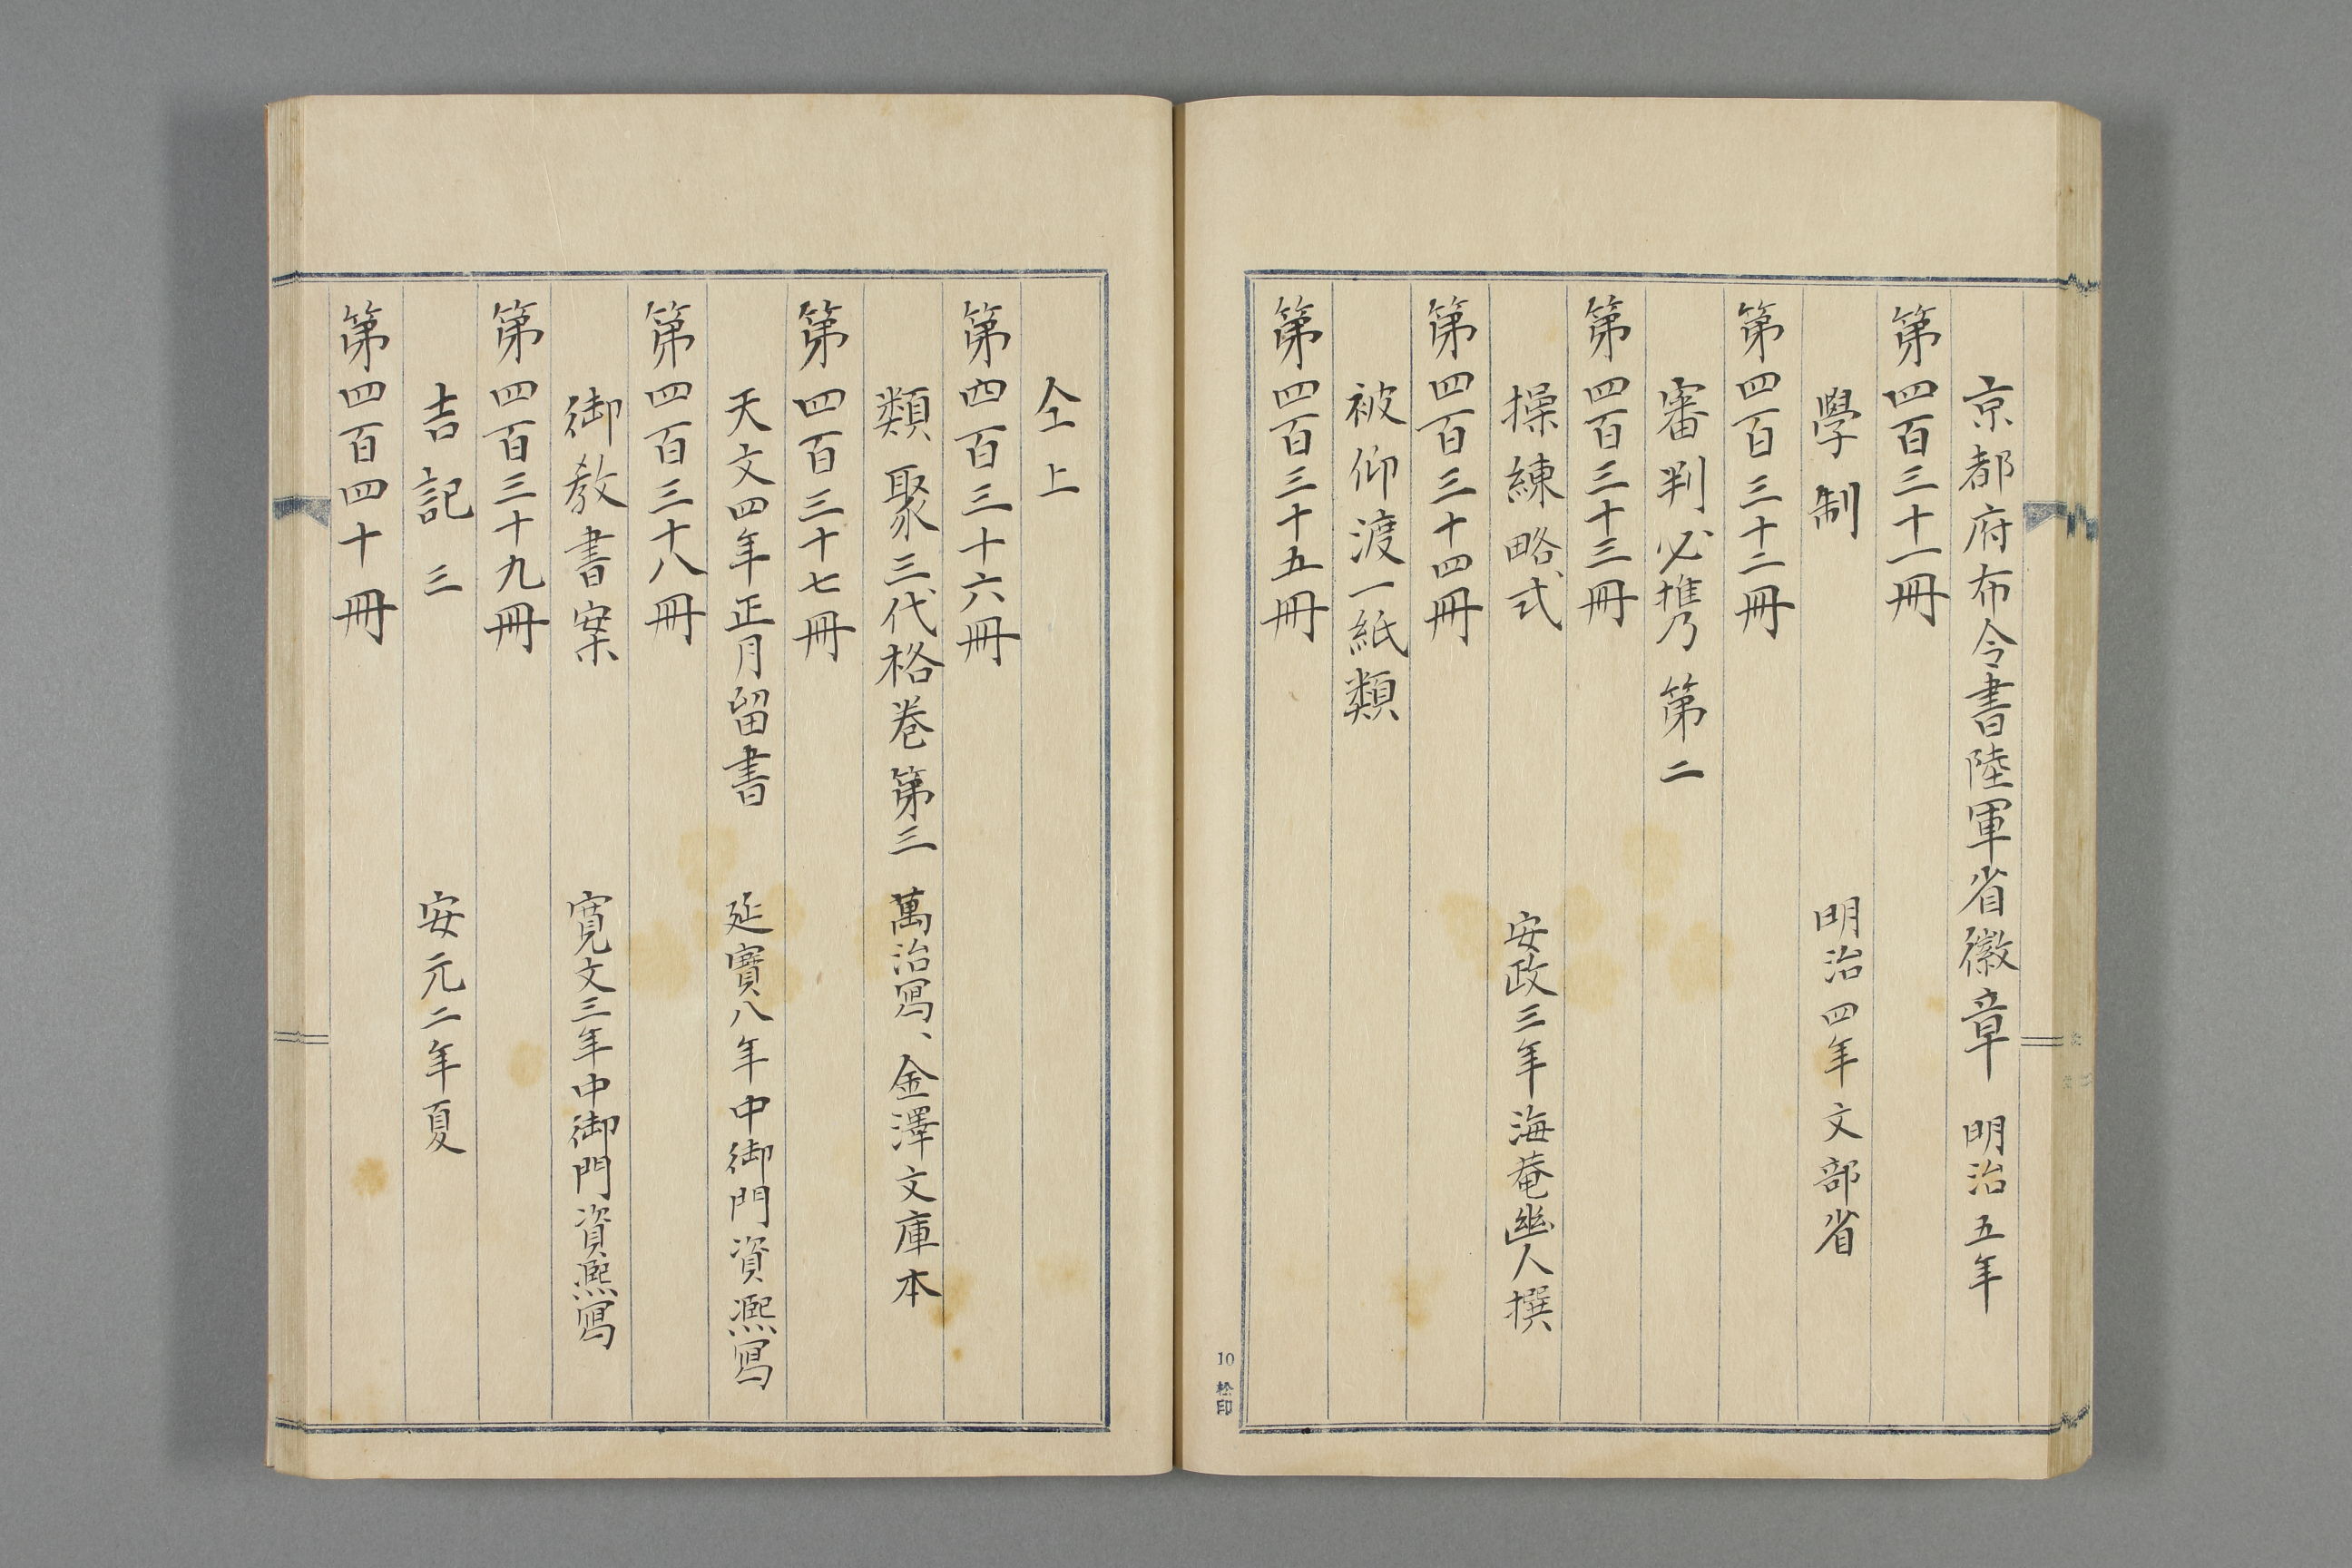 京都府布令書陸軍省徽章　明治五年
第四百三十一冊
學制　明治四年文部省
第四百三十二冊
審判必携乃第二
第四百三十三冊
操練略式　安政三年海菴幽人撰
第四百三十四冊
被仰渡一紙類
第四百三十五冊
10 松印
仝上
第四百三十六冊
類聚三代格卷第三　萬治寫、金澤文庫本
第四百三十七冊
天文四年正月留書　延寶八年中御門資凞寫
第四百三十八冊
御教書案　寛文三年中御門資凞寫
第四百三十九冊
吉記三　安元二年夏
第四百四十冊